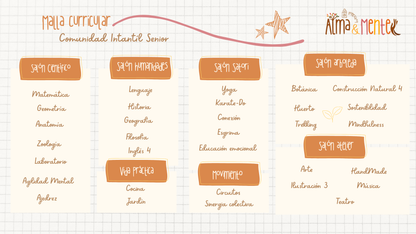 Malla Curricular
Comunidad Infantil Senior
Alma & Mente
Salón Científico
Matemática
Geometría
Anatomía
Zoología
Laboratorio
Agilidad Mental
Ajedrez
Salón Humanidades
Lenguaje
Historia
Geografía
Filosofía
Inglés 4
Vida Práctica
Cocina
Jardín
Yoga
Karate-Do
Conexión
Esgrima
Educación emocional
Movimiento
Circuitos
Sinergia colectiva
Botánica
Construcción Natural 4
Huerto
Sostenibilidad
Trekking
Mindfulness
Salón Atelier
Arte
HandMade
Ilustración 3
Música
Teatro